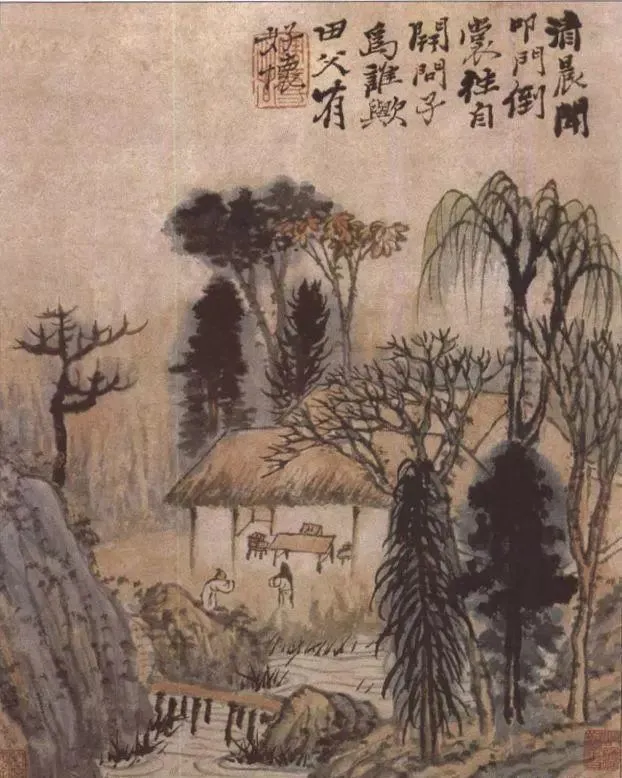 清晨聞
叩門倒
裳往自
開問子
為誰歟
田父有
好懷